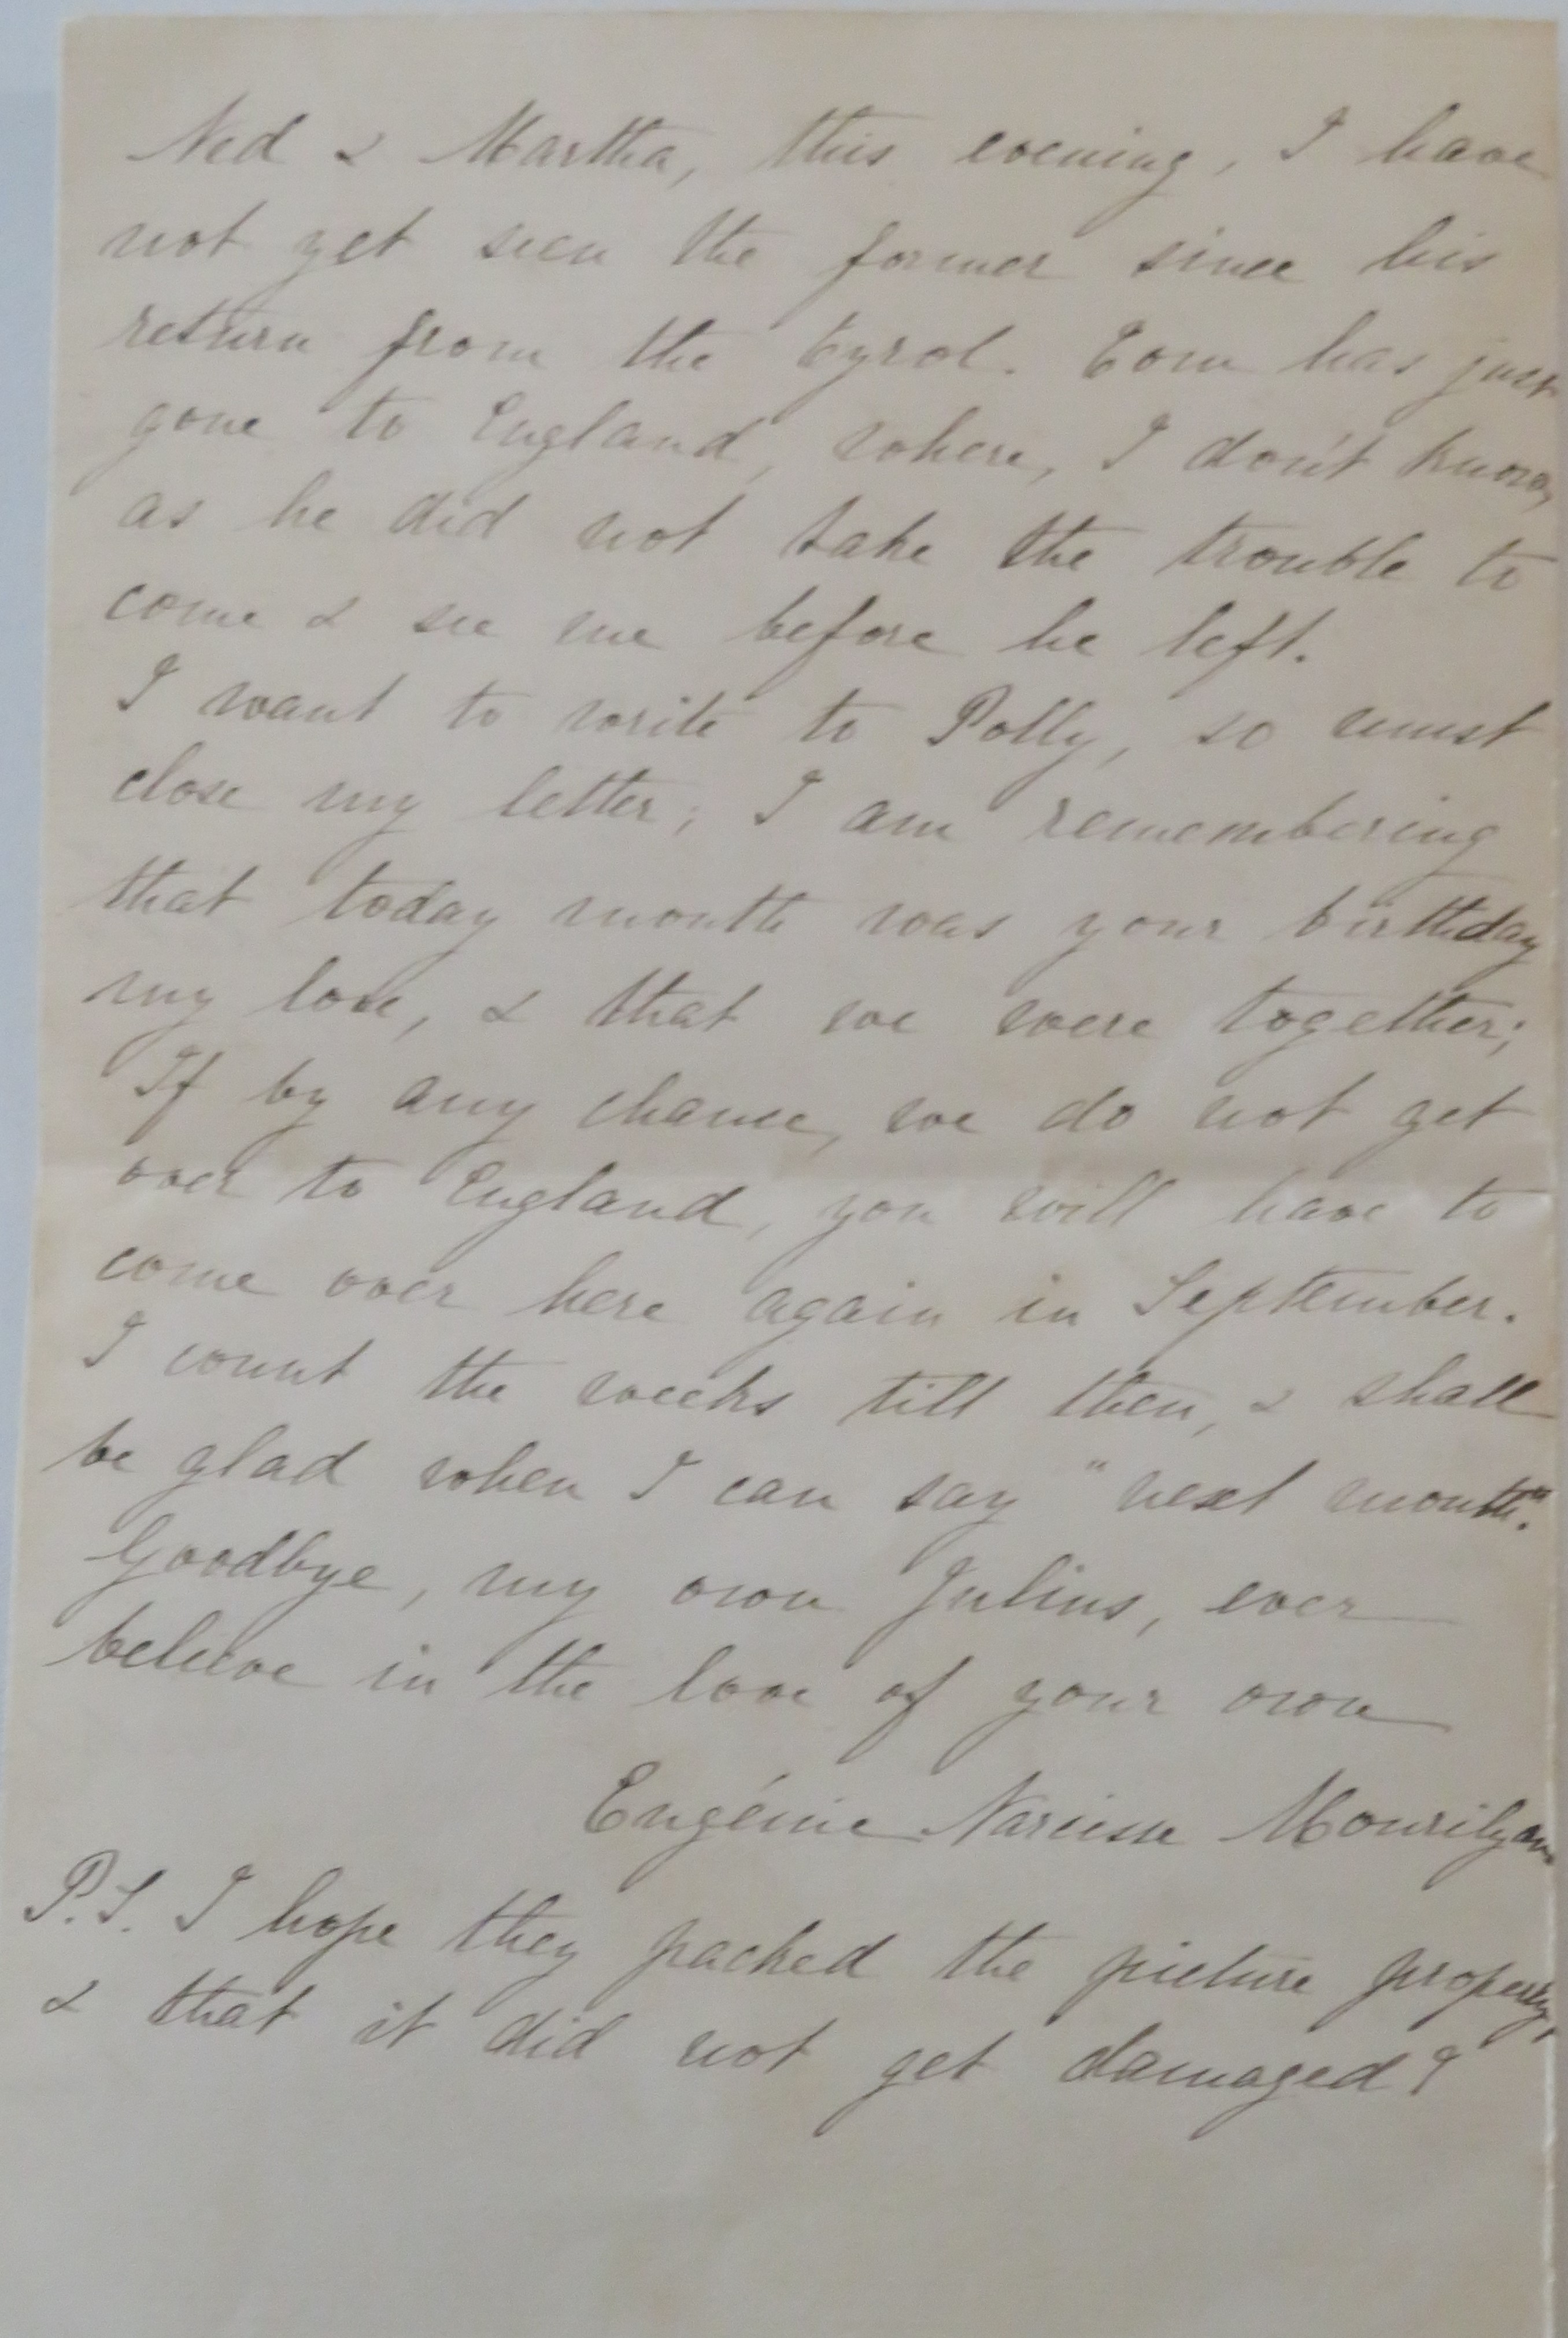 Ned & Martha, this evening, I have
not yet seen the former since his
return from the Tyrol. Tom has just
gone to England, where, I don't know,
as he did not take the trouble to
come & see me before he left.
I want to write to Polly, so must
close my letter; I am remembering
that today month was your birthday
my love, & that we were together;
If by any chance, we do not get
over to England, you will have to
come over here again in September.
I count the weeks till then, & shall
be glad when I can say "next month".
Goodbye, my own Julius, ever
believe in the love of your own
Eugénie Narcisse Mourilyan
P.S. I hope they packed the picture properly,
& that it did not get damaged?